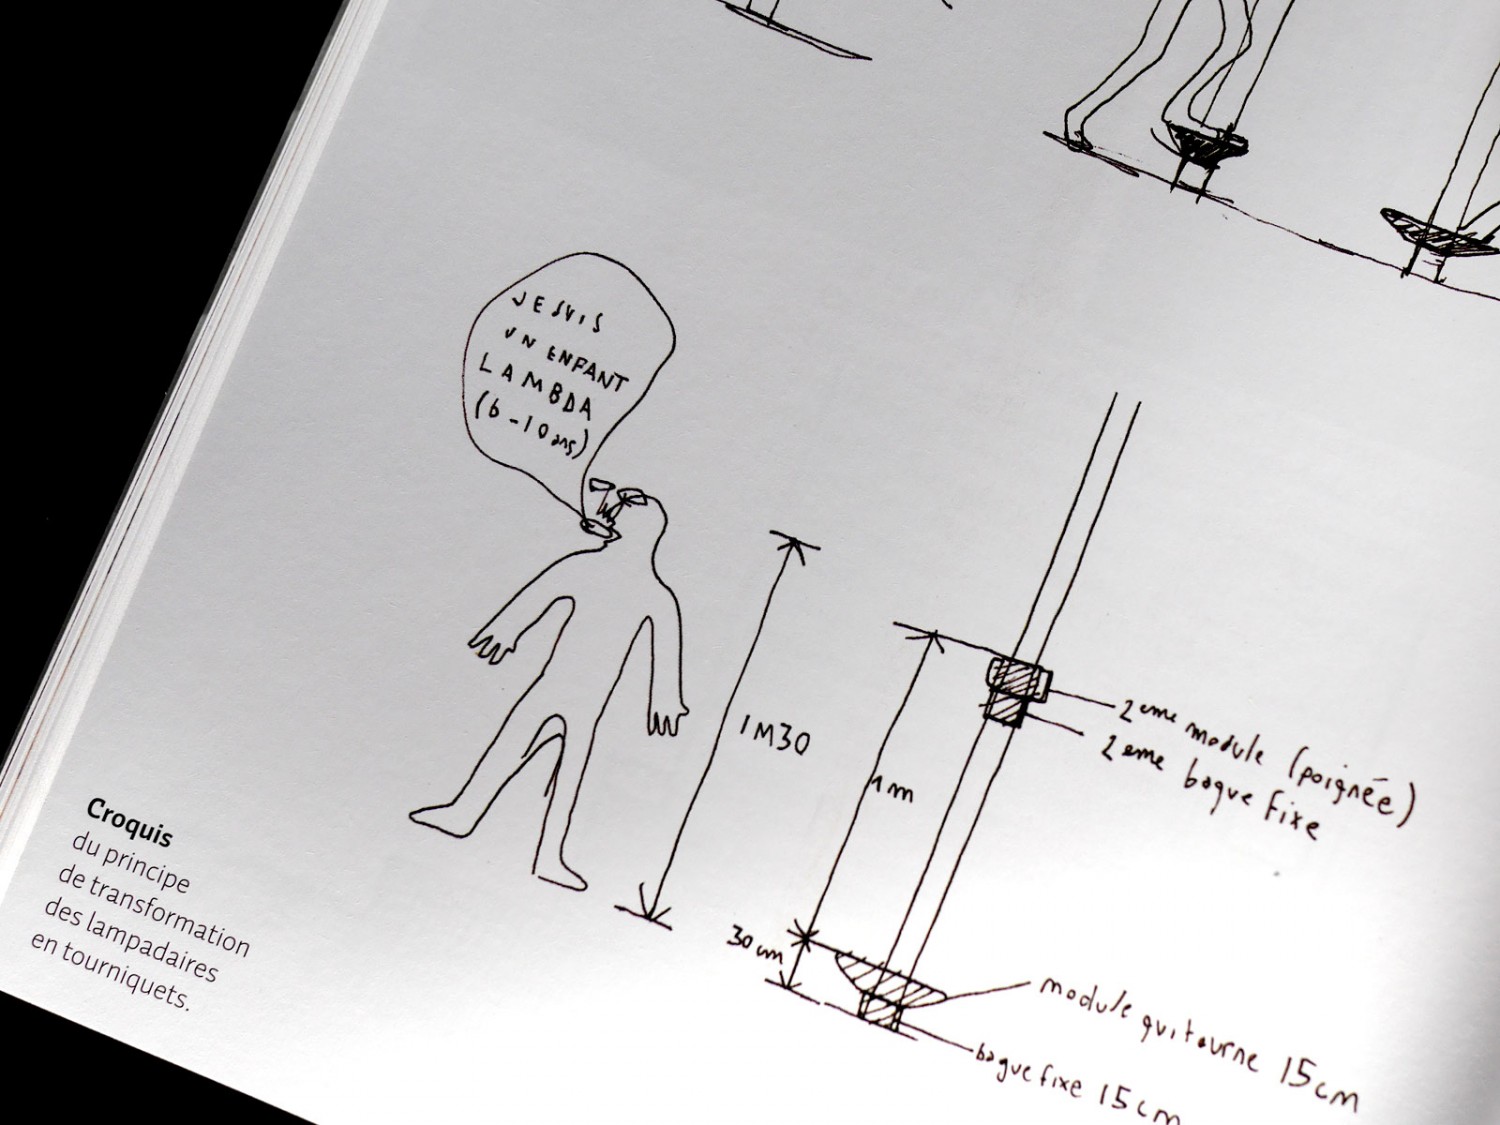 JE SUIS
UN ENFANT
LAMBDA
(6-10 ans)
1M30
1m
2eme module (poignée)
2eme bague fixe
30 cm
module qui tourne 15cm
bague fixe 15cm
Croquis
du principe
de transformation
des lampadaires
en tourniquets.